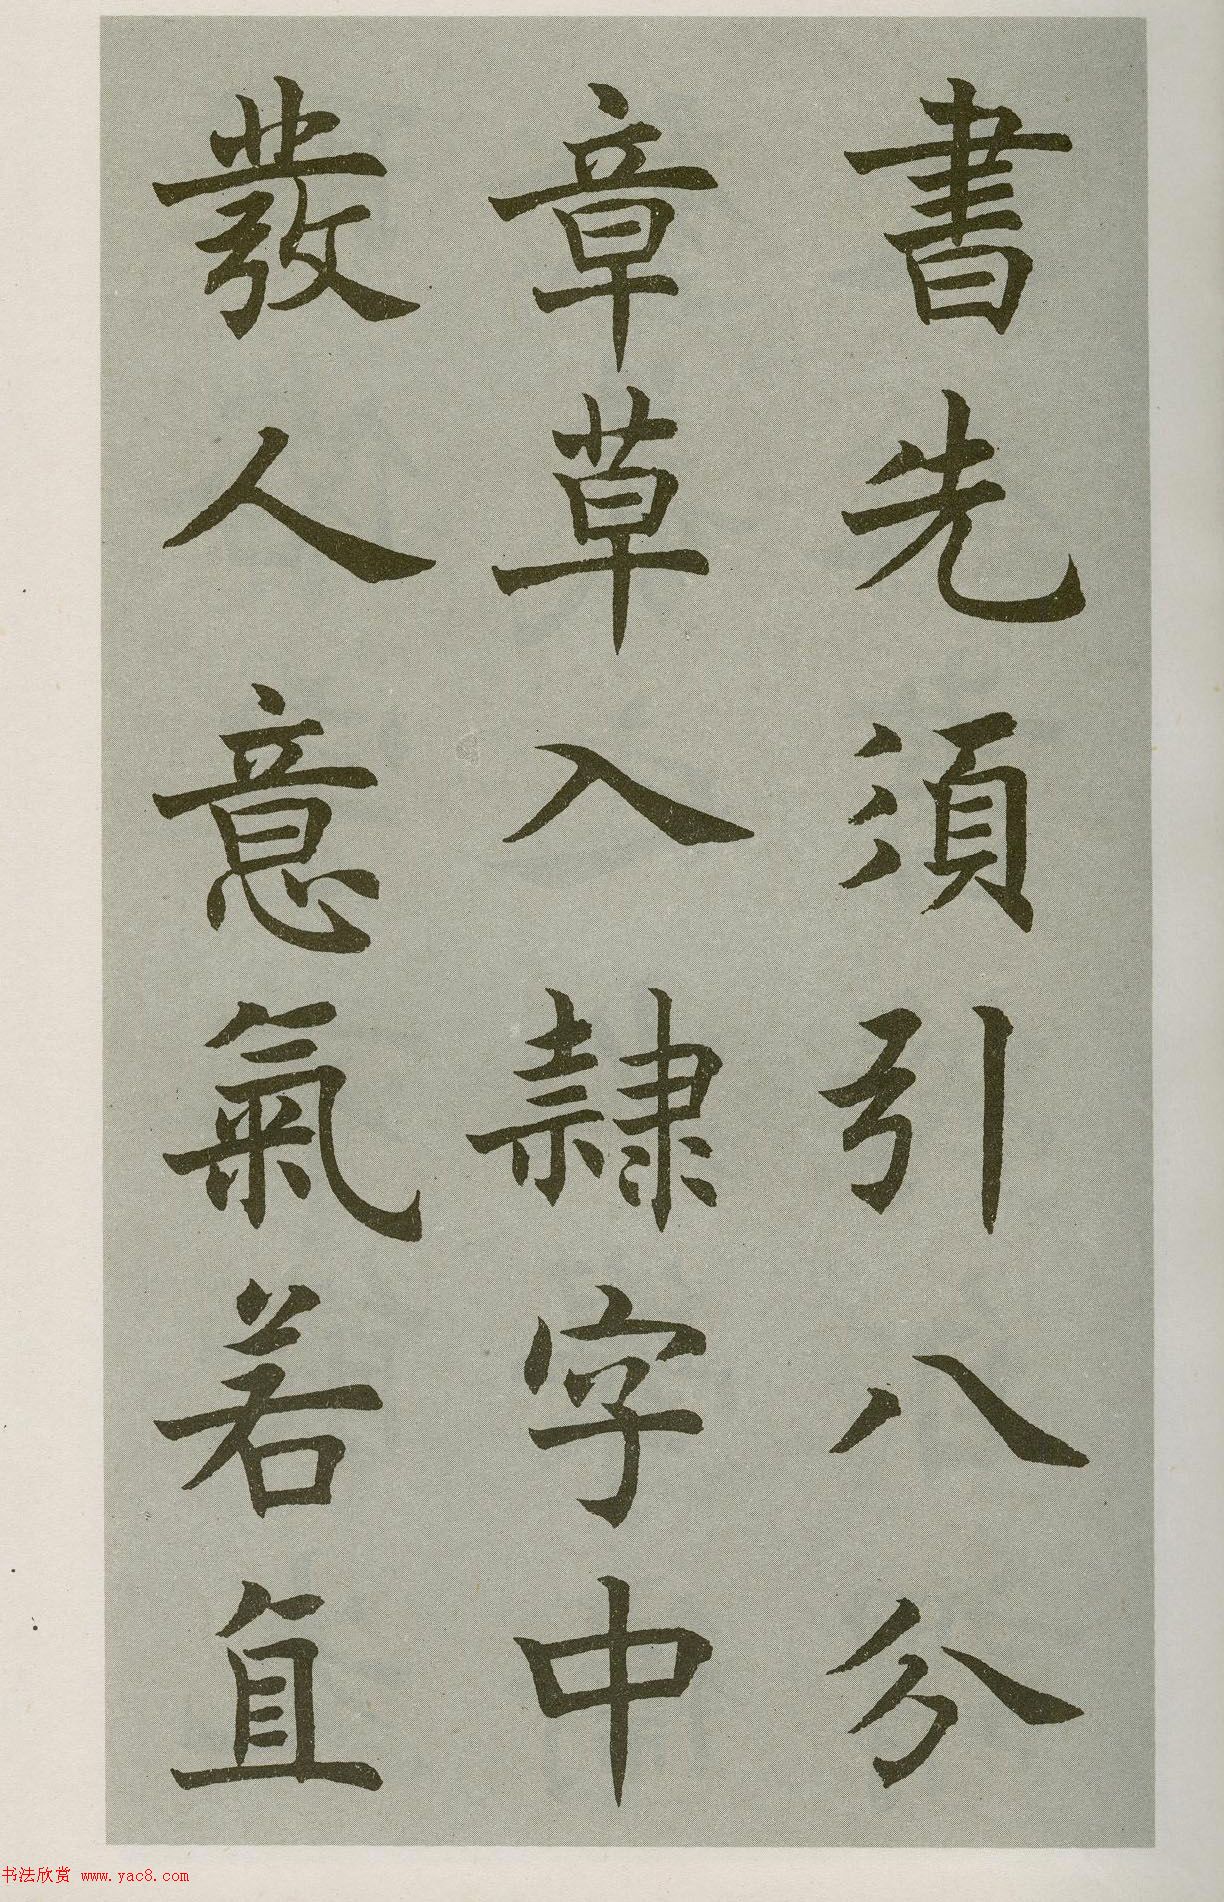 書先須引八分
章草入隷字中
發人意氣若直
书法欣赏 www.yac8.com